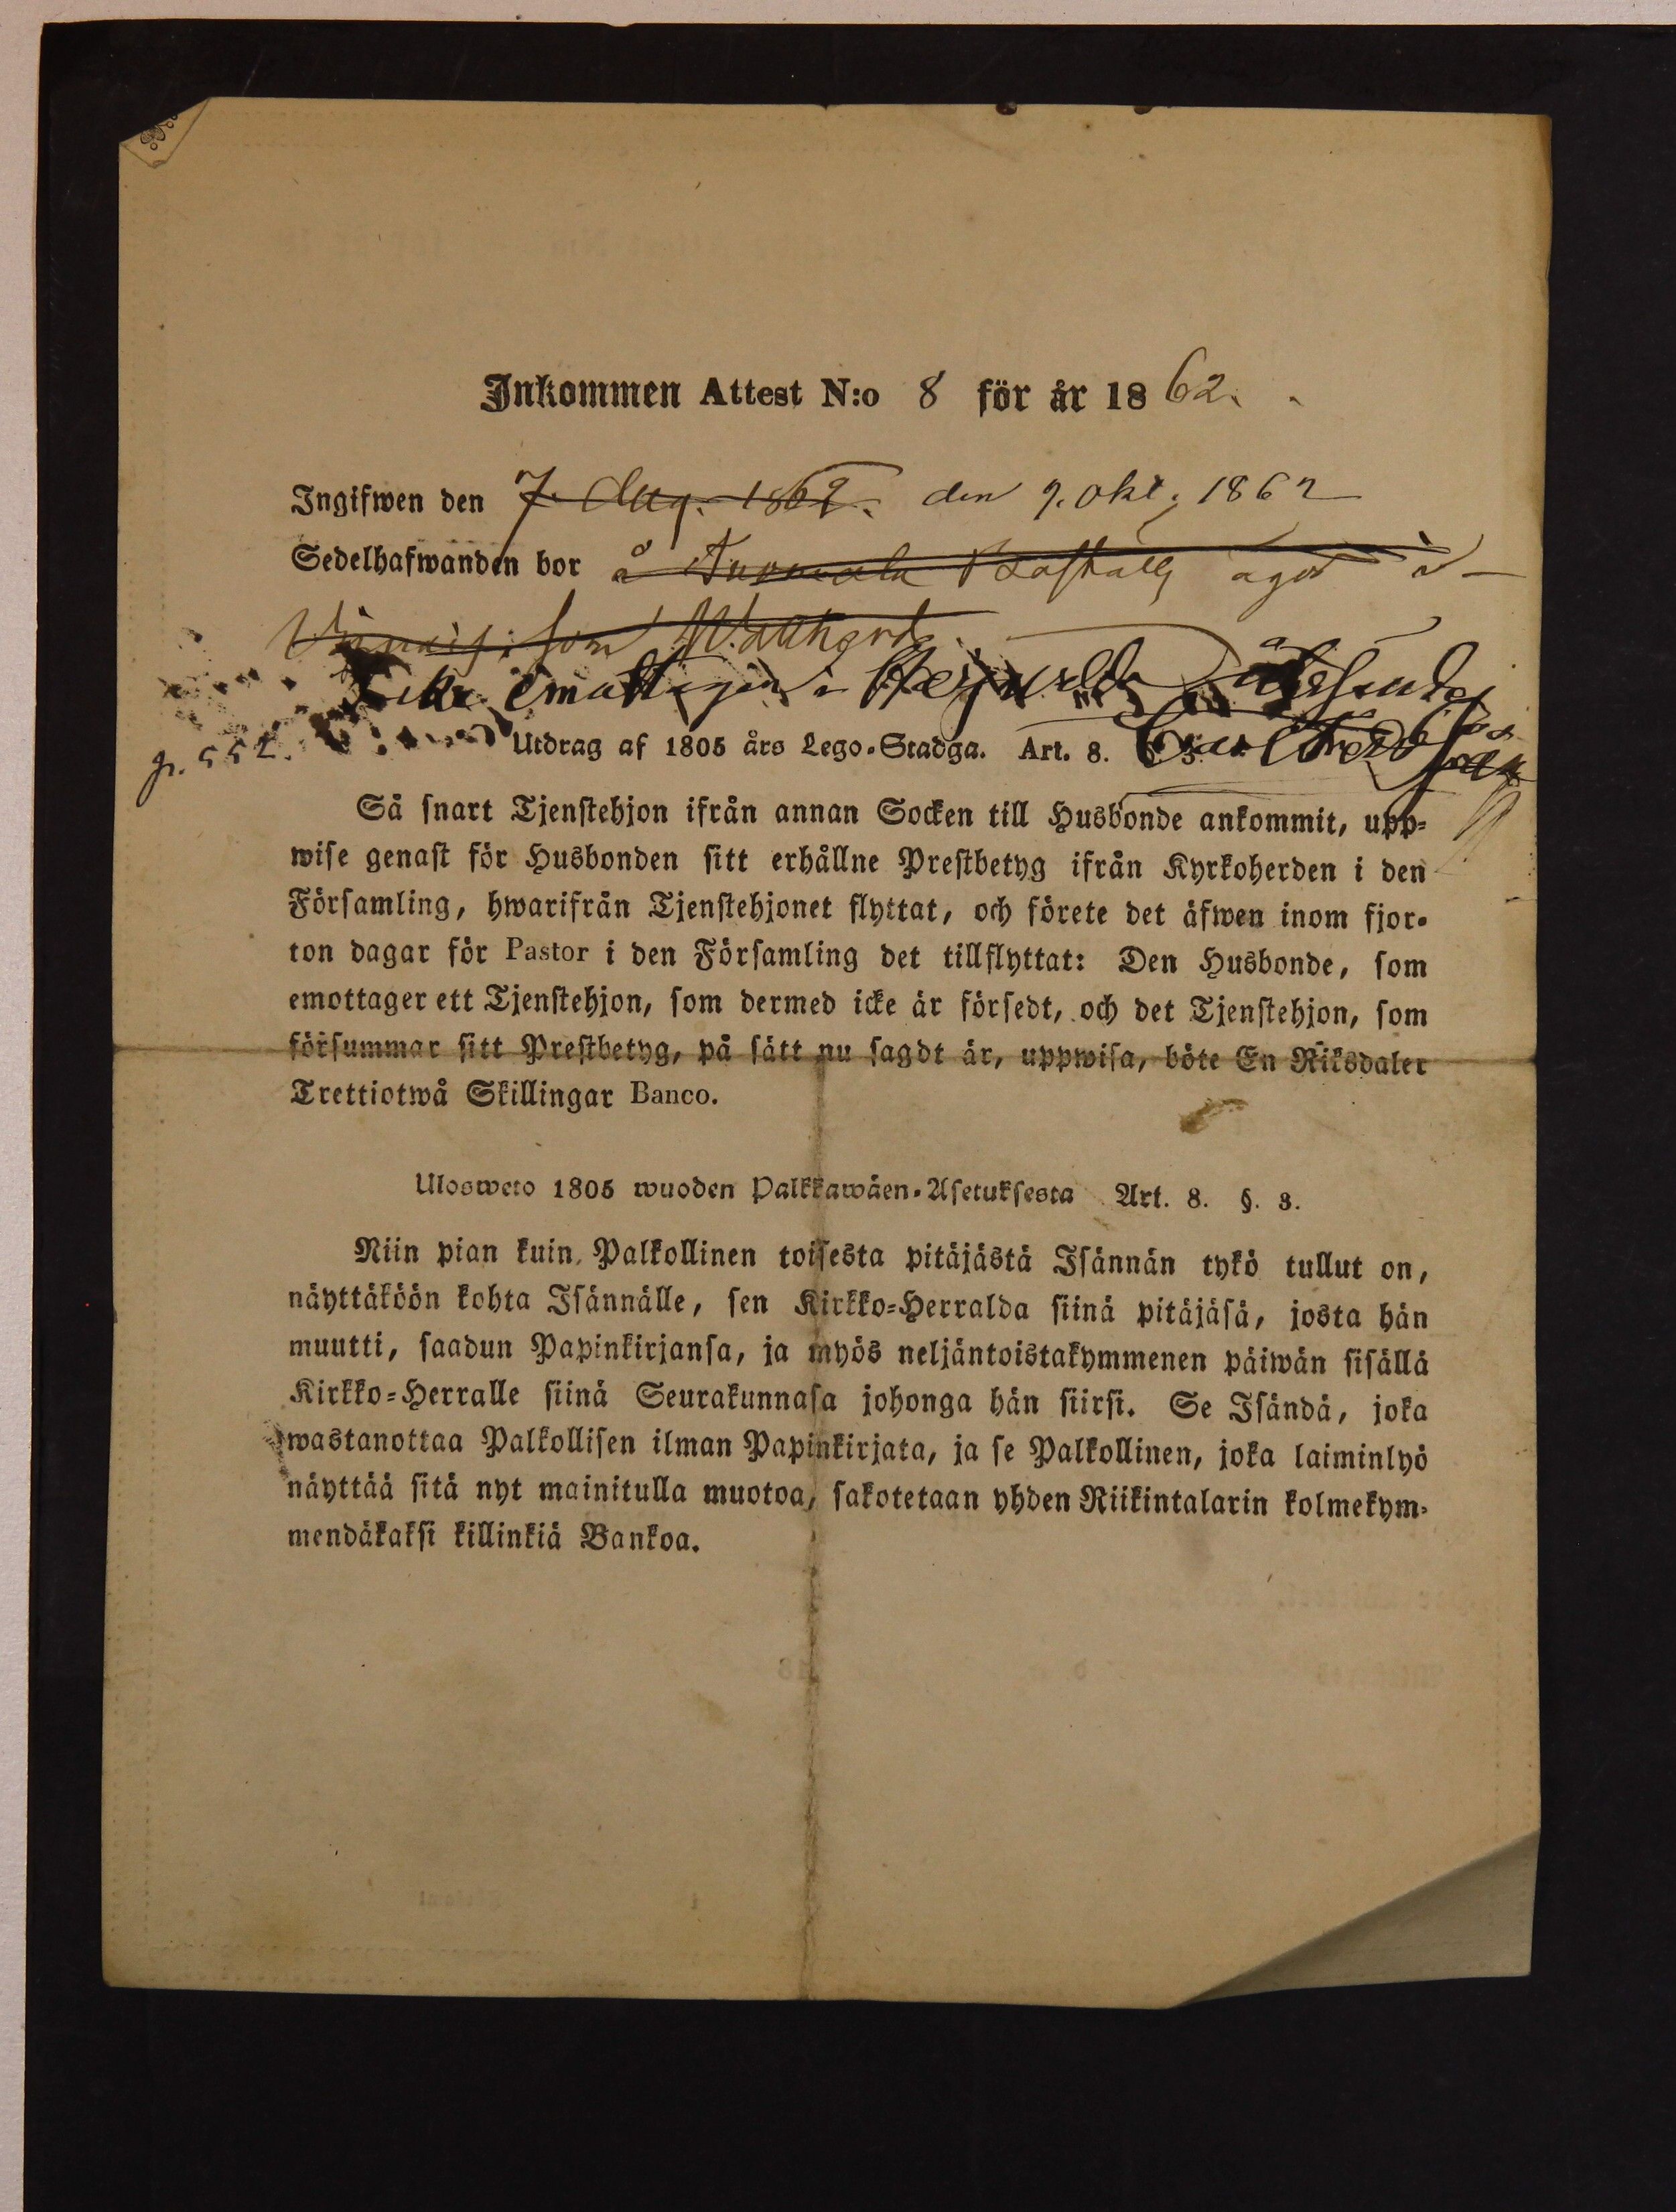 Inkommen Attest N:o 8 för år 1862.
Ingifwen den 7. Aug. 1862. den 9. Okt. 1862
Sedelhafwanden bor å
som
Icke emottagen i
p. 552.
Utdrag af 1805 års Lego-Stadga. Art. 8. §. 3.
Så snart Tjenstehjon ifrån annan Socken till Husbonde ankommit, upp-
wise genast för Husbonden sitt erhållne Prestbetyg ifrån Kyrkoherden i den
Församling, hwarifrån Tjenstehjonet flyttat, och förete det äfwen inom fjor-
ton dagar för Pastor i den Församling det tillflyttat: Den Husbonde, som
emottager ett Tjenstehjon, som dermed icke är försedt, och det Tjenstehjon, som
försummar sitt Prestbetyg, på sätt nu sagdt är, uppwisa, böte En Riksdaler
Trettiotwå Skillingar Banco.
Ulosweto 1805 wuoden Palkkawäen-Asetuksesta Art. 8. §. 3.
Niin pian kuin Palkollinen toisesta pitäjästä Isännän tykö tullut on,
näyttäköön kohta Isännälle, sen Kirkko-Herralda siinä pitäjäsä, josta hän
muutti, saadun Papinkirjansa, ja myös neljäntoistakymmenen päiwän sisällä
Kirkko-Herralle siinä Seurakunnasa johonga hän siirsi. Se Isändä, joka
wastanottaa Palkollisen ilman Papinkirjata, ja se Palkollinen, joka laiminlyö
näyttää sitä nyt mainitulla muotoa, sakotetaan yhden Riikintalarin kolmekym-
mendäkaksi killinkiä Bankoa.